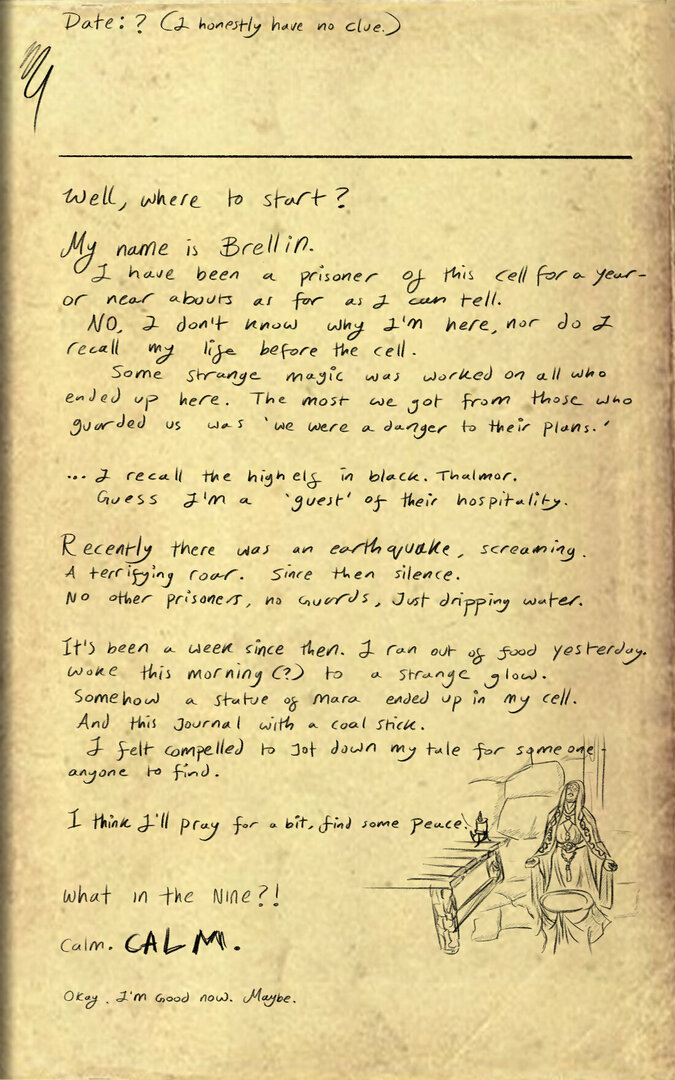 Date: ? (I honestly have no clue.)
Well, where to start?
My name is Brellin.
I have been a prisoner of this cell for a year-
or near abouts as for as I can tell.
NO, I don't know why I'm here, nor do I
recall my life before the cell.
Some strange magic was worked on all who
ended up here. The most we got from those who
guarded us was 'we were a danger to their plans.'
... I recall the high elf in black. Thalmor.
Guess I'm a 'guest' of their hospitality.
Recently there was an earthquake, screaming.
A terrifying roar. Since then silence.
No other prisoners, no Guards, Just dripping water.
It's been a week since then. I ran out of food yesterday.
Woke this morning (?) to a strange glow.
Somehow a statue of Mara ended up in my cell.
And this Journal with a coal stick.
I felt compelled to Jot down my tale for someone-
anyone to find.
I think I'll pray for a bit, find some peace.
What in the Nine?!
Calm. CALM.
Okay. I'm Good now. Maybe.